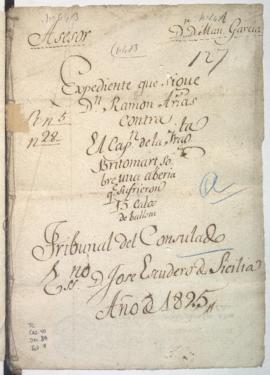 Asesor
Dr. Dn. Man. Garcia
127
Expediente que sigue
Dn. Ramon Arias
contra
El Capn. de la Frag.ta
Britomart so
bre una aberia
qe. sufrieron
15 caxs.
Tribunal del Consulado
Essno. D. Jose Escudero d. Sicilia
Año d 1825